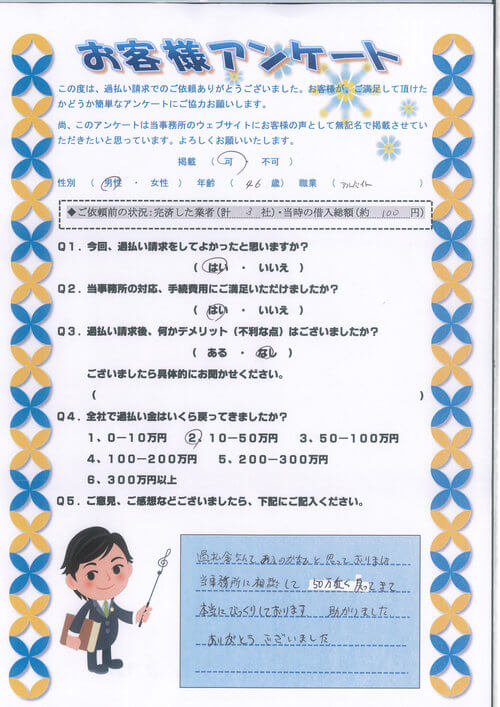 お客様アンケート
この度は、過払い請求でのご依頼ありがとうございました。お客様が、ご満足して頂けた
かどうか簡単なアンケートにご協力お願いします。
尚、このアンケートは当事務所のウェブサイトにお客様の声として無記名で掲載させてい
ただきたいと思っています。よろしくお願いいたします。
掲載 （ 可 ・ 不可 ）
性別 （ 男性 ・ 女性 ） 年齢 （ 46 歳） 職業 （ アルバイト ）
◆ご依頼前の状況：完済した業者（計 3 社）・当時の借入総額（約 100 円）
Q1．今回、過払い請求をしてよかったと思いますか？
（ はい ・ いいえ ）
Q2．当事務所の対応、手続費用にご満足いただけましたか？
（ はい ・ いいえ ）
Q3．過払い請求後、何かデメリット（不利な点）はございましたか？
（ ある ・ なし ）
ございましたら具体的にお聞かせください。
（ ）
Q4．全社で過払い金はいくら戻ってきましたか？
1、0－10万円 2、10－50万円 3、50－100万円
4、100－200万円 5、200－300万円
6、300万円以上
Q5．ご意見、ご感想などございましたら、下記にご記入ください。
過払金なんて あるのかなと 思って おりましたが
当事務所に相談して 50万近く戻ってきて
本当にびっくりしております 助かりました
ありがとう ございました